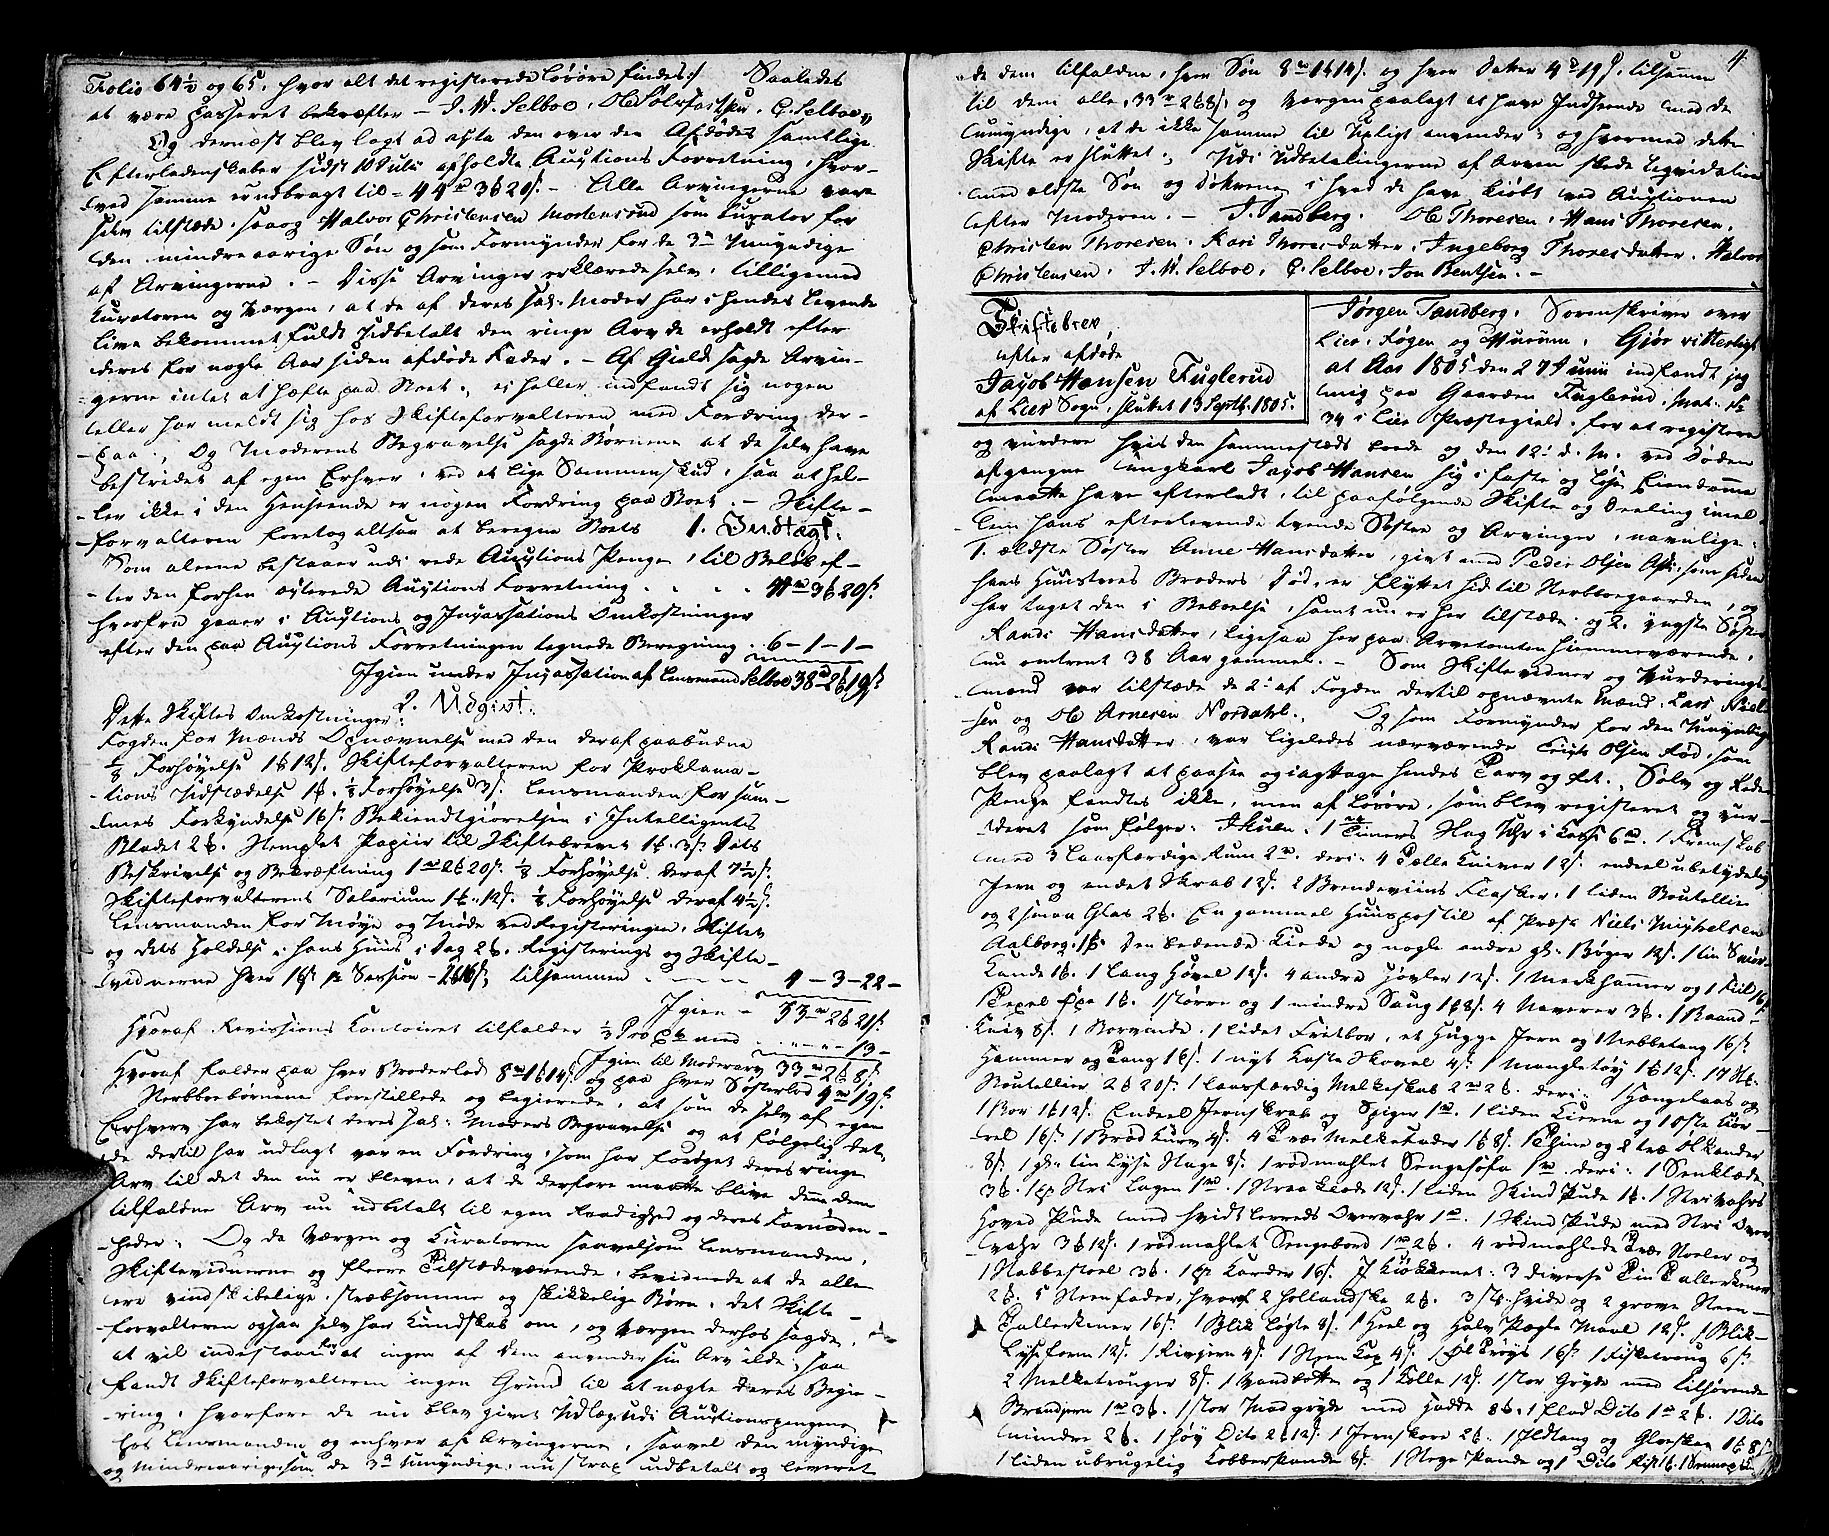 Folio 64½ og 65. hvor alt det registerede Løsøre findes:/ Saaledes
at være passeret bekræfter — J. W. Selboe, Ole Solerfostsen, C. Selboe,
Og dernæst blev lagt ad acta den over den Afdødes samtlige
Efterladenskaber sidst 10 Julii afholdte Auctions Forretning, hvor-
ved samme er udbragt til — 44 rd 3 ß 20 s. — Alle Arvingerne vare
selv tilstæde, saa og Halvor Christensen Mortensrud som Curator for
den mindreaarige Søn og som Formynder for de 3de Umyndige
af Arvingerne. — Disse Arvinger erklærede selv, tilligemed
Curatoren og Værgen, at de af deres Sal. Moder har i hendes levende
Live bekommet fuldt udbetalt den ringe Arv de erholdt efter
deres for nogle Aar siden afdøde Fader. — Af Gield sagde Arvin-
gerne intet at hæfte paa Boet, ei heller indfandt sig nogen
eller har meldt sig hos Skifteforvalteren med Fordring der-
paa, Og Moderens Begravelse sagde Børnene at de selv have
bestridet af egen Erhverv, ved et lige Sammenskud, saa at hel-
ler ikke i den Henseende er nogen Fordring paa Boet. — Skifte-
forvalteren foretog altsaa at beregne Boets 1. Indtægt.
Som alene bestaaer udi rede Auctions Penge, til Beløb ef-
ter den forhen acterede Auctions Forretning . . . . 44 rd 3 ß 20 s.
hvorfra gaaer i Auctions og Incassations Omkostninger
efter den paa Auctions Forretningen tegnede Beregning . 6 – 1 – 1 –
Igien under Incassation af Lensmand Selboe 38 rd 2 ß 19 s.
2. Udgivt.
Dette Skiftes Omkostninger:
Fogden for Mænds Opnævnelse med den deraf paabudne
⅛ Forhøyelse 1 ß 12 s. Skifteforvalteren for Proklama-
tions Udstædelse 1 ß. ⅛ Forhøyelse 3 s. Lensmanden for sam-
mes Forkyndelse 16 s. Bekiendtgiørelsen i Intelligents
Bladet 2 ß. Stemplet Papiir til Skiftebrevet 1 ß 3 s. Dets
Beskrivelse og Bekræftning 1 rd 2 ß 20 s. ⅛ Forhøyelse deraf 7½ s.
Skifteforvalterens Salarium 1 ß 12 s. ⅛ Forhøyelse deraf 4½ s.
Lensmanden for Møye og Møde ved Registeringen, Skiftet
og dets Holdelse i hans Huus i Dag 2 ß. Registerings og Skifte-
vidnerne hver 16 s. pr Session – 2 ß 16 s, tilsammen . . . 4 – 3 – 22 –
Igien – 33 rd 2 ß 21 s.
Hvoraf Revissions Kontoiret tilfalder ½ Pro Ct med . . . . 13 –
Igien til Moderarv 33 rd 2 ß 8 s.
Hvoraf falder paa hver Broderlod 8 rd 1 ß 14 s. og paa hver Søsterlod 4 rd 19 s.
Sterbboebørnene forestillede og begierede, at som de selv af egen
Erhverv har bekostet deres Sal. Moders Begravelse og at følgelig det,
de dertil har udlagt var en Fordring, som har forøget deres ringe
Arv til det den nu er bleven, at de derfore maatte blive dem den
tilfaldne Arv nu udbetalt til egen Raadighed og deres Fornøden-
heder: Og da Værgen og Curatoren saavelsom Lensmanden,
Skiftevidnerne og fleere Tilstædeværende, bevidnede at de alle
ere vindskibelige, stræbsomme og skikkelige Børn, det Skifte-
forvalteren ogsaa selv har Kundskab om, og Værgen derhos sagde,
at vil indestaae for at ingen af dem anvender sin Arv ilde; saa
fandt Skifteforvalteren ingen Grund til at nægte deres Begie-
ring, hvorfore de nu blev givet Udlæg udi Auctionspengene
hos Lensmanden og enhver af Arvingerne, saavel den myndige
og mindreaarige som de 3de Umyndige, nu strax udbetalt og leveret
4.
de dem tilfaldne, hver Søn 8 rd 1 ß 14 s. og hver Datter 4 rd 19 s. tilsamen
til dem alle, 33 rd 2 ß 8 s, og Værgen paalagt at have Indseende med de
Umyndige, at de ikke samme til Upligt anvender; og hvormed dette
Skifte er sluttet. Udi Udbetalingerne af Arven skede Liqvidation
med ældste Søn og Døttrene i hvad de have kiøbt ved Auctionen
efter Moderen. — J. Tandberg. Ole Thoresen, Hans Thoresen,
Christen Thoresen. Kari Thoresdatter, Ingeborg Thoresdatter, Halvor
Christensen, J. W. Selboe, C. Selboe, Jon Bentsen. —
Skiftebrev,
efter afdøde
Jacob Hansen Fuglerud
af Lier Sogn, sluttet 13 Septb. 1805.
Jørgen Tandberg, Sorenskriver over
Lier, Røgen og Hurum, Giør vitterligt
at Aar 1805 den 27 Junii indfandt jeg
mig paa Gaarden Fuglerud, Mat. No
34 i Lier Præstegield, for at registere
og vurdere hvis den sammesteds boede og den 12. d. M. ved Døden
afgangne Ungkarl Jacob Hansen sig i faste og løse Eiendomme
maatte have efterladt, til paafølgende Skifte og Deeling imel-
lem hans efterlevende tvende Søstre og Arvinger, navnlige:
1. ældste Søster Anne Hansdatter, givt med Peder Olsen, som siden
hans Hustroes Broders Død, er flyttet hid til Sterbboegaarden, og
har taget den i Beboelse, samt nu er her tilstæde, og 2. yngste Søster
Randi Hansdatter, ligesaa her paa Arvetomten hiemmeværende,
nu omtrent 38 Aar gammel. — Som Skiftevidner og Vurderings-
mænd var tilstæde de 2de af Fogden dertil opnævnte Mænd, Lars Niel-
sen og Ole Arnesen Nordahl. Og som Formynder for den Umyndige
Randi Hansdatter, var ligeledes nærværende Erich Olsen Rød, som
blev paalagt at paasee og iagttage hendes Tarv og Ret. Sølv og Rede
Penge fandtes ikke, men af Løsøre, som blev registeret og vur-
deret som følger: I Stuen. 1 Timers Slag Uhr i Kasse 6 rd. 1 Fremskab
med 3 laasfærdige Rum 2 rd. deri: 4 Tælle Kniver 12 s. endeel ubetydelig
Jern og andet Skrab 12 s. 2 Brændeviins Flasker, 1 liden Boutellie
og 2 smaa Glas 2 ß. En gammel Huuspostil af Præst Niels Michelsen
Aalborg 1 ß. Den bedende Kiæde og nogle andre gl. Bøger 12 s. 1 lin Snør-
Kande 1 ß. 1 lang Høvel 12 s. 4 andre Høvler 12 s. 1 Merkhammer og 1 Fiil 16 s
1 Texel Øxe 1 ß. 1 større og 1 mindre Saug 1 ß 8 s. 4 Naverer 3 ß. 1 Baand-
Kniv 8 s. 1 Borvinde, 1 lidet Fretbor, et Hugge Jern og 1 Nebbetang 16 s.
Hammer og Tang 16 s. 1 nyt Kaste Skovel 4 s. 1 Mangletøy 1 ß 12 s. 17 Stk.
Boutellier 2 ß 20 s. 1 laasfærdig Melkeskab 2 rd 2 ß. deri: 1 Hængelaas og
1 Bor 1 ß 12 s. Endeel Jernskrab og Spiger 1 rd. 1 liden Kierne og 1 Oste Kør-
rel 16 s. 1 Brød Kurv 4 s. 4 Træ Melkebøder 1 ß 8 s. 1 Tine og 2 træ Ølkander
8 s. 1 gl. lin Lyse Stage 8 s. 1 rødmahlet Sengesofa 1 rd. deri: 1 Senklæde
3 ß. 1 p. Strie Lagen 1 rd. 1 Straa Klæde 12 s. 1 liden Skind Pude 1 ß. 1 Strie vahrs
Hoved Pude med hvidt Lerreds Overvahr 1 rd. 1 Skind Pude med Strie Over-
vahr 3 ß 12 s. 1 rødmahlet Sengebord 1 rd 2 ß. 4 rødmahlede Træ Stoeler og
1 Kabbestoel 3 ß. 1 p. Karder 16 s. I Kiøkkenet: 3 diverse Tin Tallerkener
2 ß. 5 Steen Fader, hvoraf 2 hollandske 2 ß. 3 Stk. hvide og 2 grove Steen-
Tallerkener 16 s. 1 Blik Løgte 8 s. 1 Heel og Halv Pægle Maal 12 s. 1 Blik-
Lyseform 12 s. 1 Rivjern 4 s. 1 Steen Kop 4 s. 1 Øl Trøys 16 s. 1 Fisketroug 6 s.
2 Melketrouger 8 s. 1 Vandbøtte og 1 Kolle 12 s. 1 stor Gryde med tilhørende
Brandjern 1 rd 3 ß. 1 stor Madgryde med Hadde 8 ß. 1 flad Dito 1 rd 2 ß. 1 Dito
mindre 2 ß. 1 høy Dito 2 ß 12 s. 1 Jernskore 2 ß. 1 Ildtang og Gloeskee 1 ß 8 s.
1 liden ubrugelig Kobberpande 8 s. 1 Stege Pande og 1 Dito Rist 1 ß.